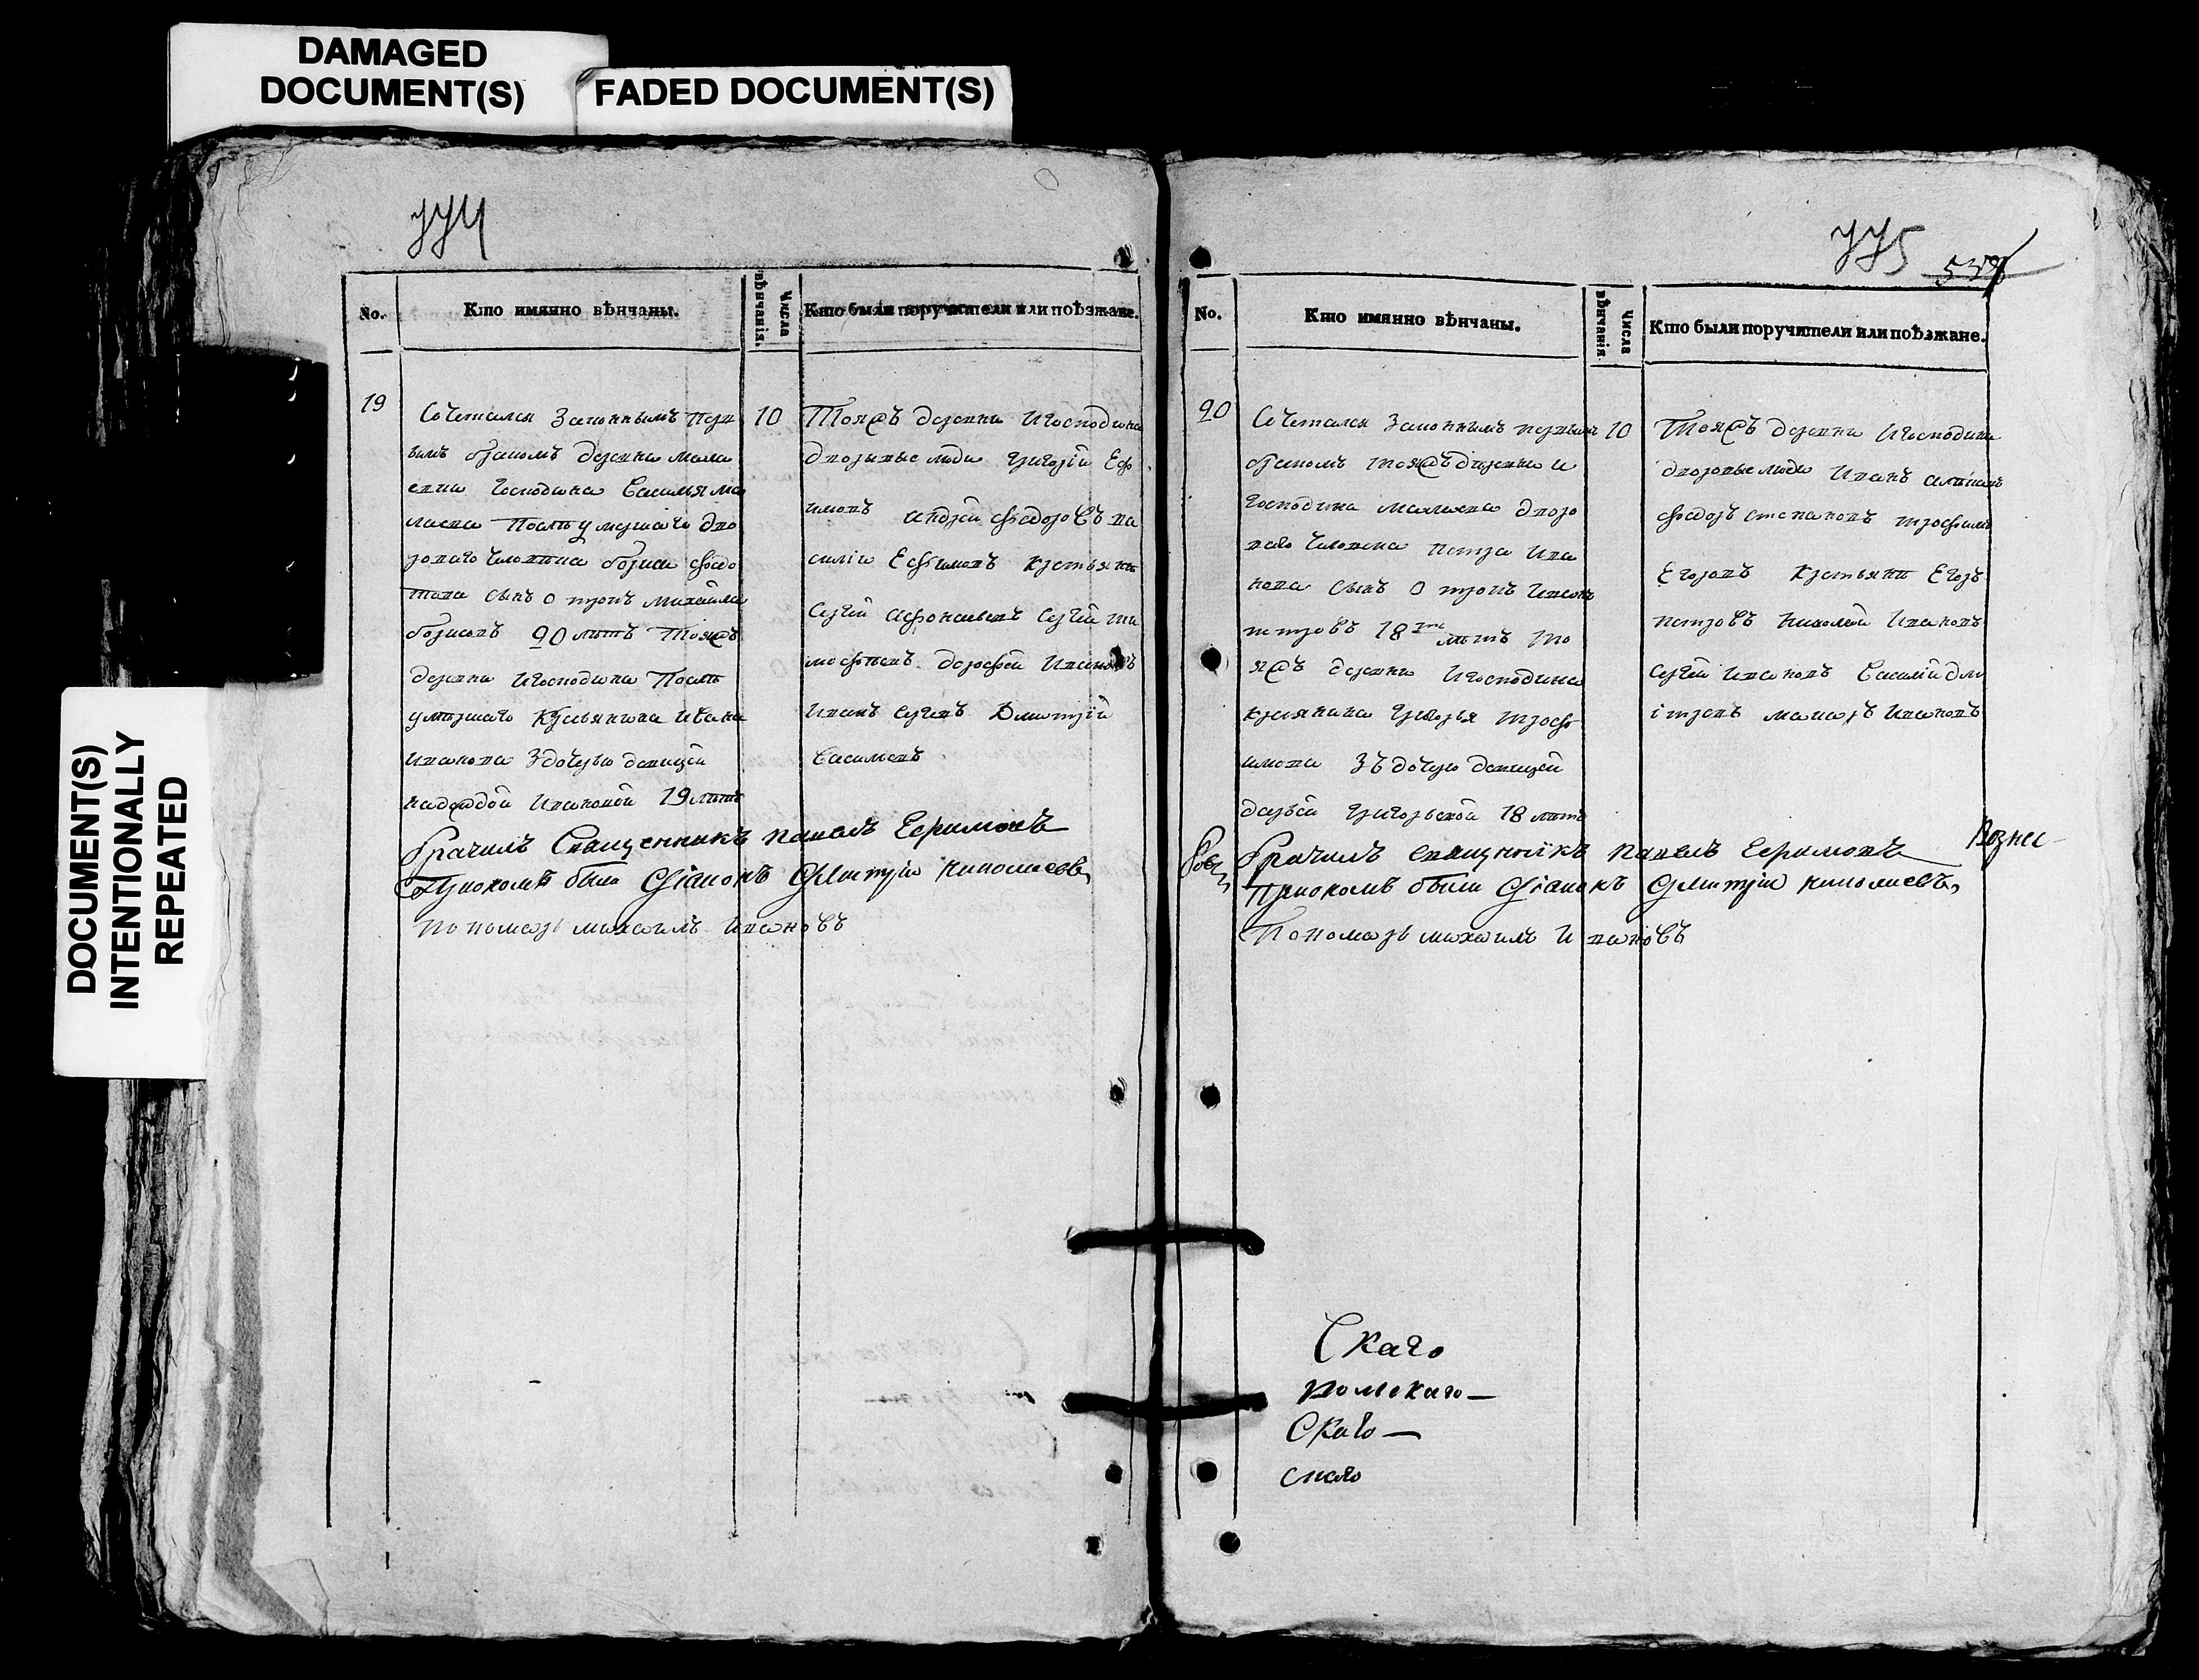 DAMAGED
DOCUMENT(S)
FADED DOCUMENT(S)
DOCUMENT(S)
INTENTIONALLY
REPEATED
774
No.
Кто имянно вѣнчаны.
Числа
вѣнчанія.
Кто были поручители или поѣзжане.
19
Сочетался Законнымъ перв
вымъ бракомъ деревни
Господина Василья
послѣ умершаго дво
роваго человѣка бориса
сынъ отрокъ михайла
борисовъ 20 лѣтъ тояжъ
деревни Игосподина Послѣ
умершаго Крестьянина ивана
иванова Здочерью девицей
надеждой ивановой 19 лѣтъ
10
Тояжъ деревни Игосподина
дворовые люди григорій Еф
имовъ андрей федоровъ ва
силій Ефимовъ Крестьяне
Сергій афонасьевъ Сергій ти
мофѣевъ дорофей Ивановъ
иванъ сергѣевъ Дмитрій
Васильевъ
брачилъ Священникъ павелъ Ефимовъ
Приономъ были Діаконъ Дмитрій николаевъ,
пономарь михаилъ ивановъ
775
538
No.
Кто имянно вѣнчаны.
Числа
вѣнчанія
Кто были поручители или поѣзжане.
20
Сочетался Законнымъ первымъ
бракомъ тояжъ деревни и
господина дворо
ваго человека петра ива
нова сынъ отрокъ иванъ
петровъ 18 лѣтъ то
яжъ деревни Игосподина
крестьянина григорья трофи
имова Зъ дочерью девицей
дарьей григорьевой 18 лѣтъ
10
Тояжъ деревни Игосподина
дворовые люди иванъ
федоръ степановъ трофимъ
Егоровъ Крестьяне Егоръ
петровъ николай ивановъ
сергей ивановъ Василій дми
тріевъ макаръ ивановъ
брачилъ священникъ павелъ Ефимовъ
Вознес-
Приономъ были Діаконъ Дмитрій николаевъ,
Пономарь михаилъ Ивановъ
Скаго
скаго —
скаго